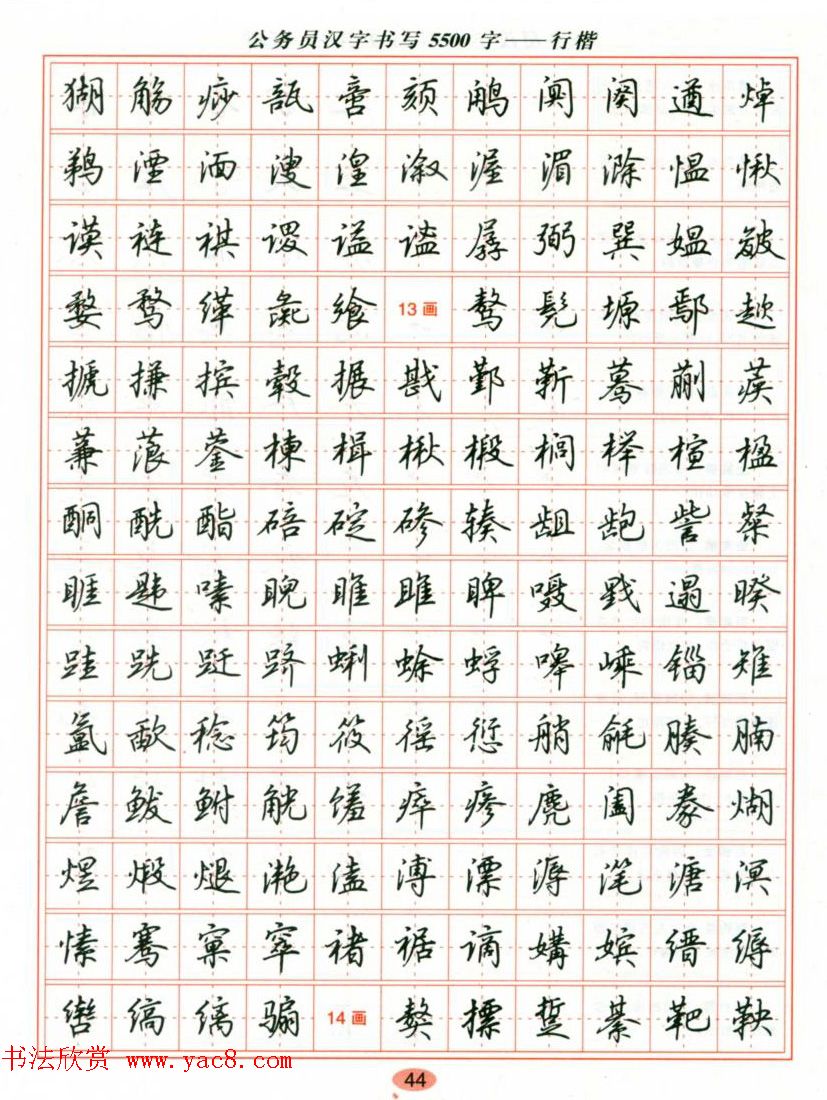 公务员汉字书写5500字——行楷
猢觞痧瓿啻颏鹇阒阕遒焯
鹈湮湎溲湟溆渥湄滁愠愀
谟裢祺谡谥谧孱弼巽媪皴
婺骛缂彘飨13画骜髡塬鄢趑
摅搛摈毂搌戡鄞靳蓦蒯蒺
蒹蒗蓥楝楫楸椴榈榉楦楹
酮酰酯碚碇碜辏龃龅訾粲
睚韪嗪睨睢雎睥嗫戥遢暌
跬跣跹跻蜊蜍蜉嗥嵊锱雉
氲歃稔筠筱徭愆艄毹腠腩
詹鲅鲋觥馐瘁瘆麂阖豢煳
煜煅煺滟溘溥溧溽滗溏溟
愫骞寞窣褚裾谪媾嫔缙缛
辔缟缡骟14画獒摽踅綦靶鞅
书法欣赏 www.yac8.com
44